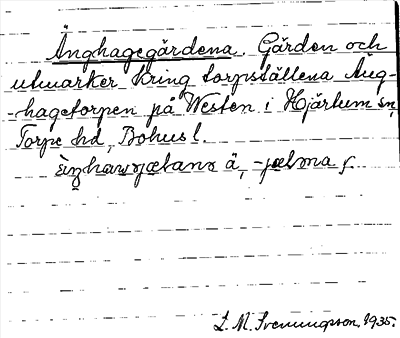 Änghagegärdena. Gärden och
utmarker kring torpställena Äng-
-hagetorpen på Westen i Hjärtum sn,
Torpe hd, Bohusl.
ä, f.
L. M. Svenungsson, 1935.